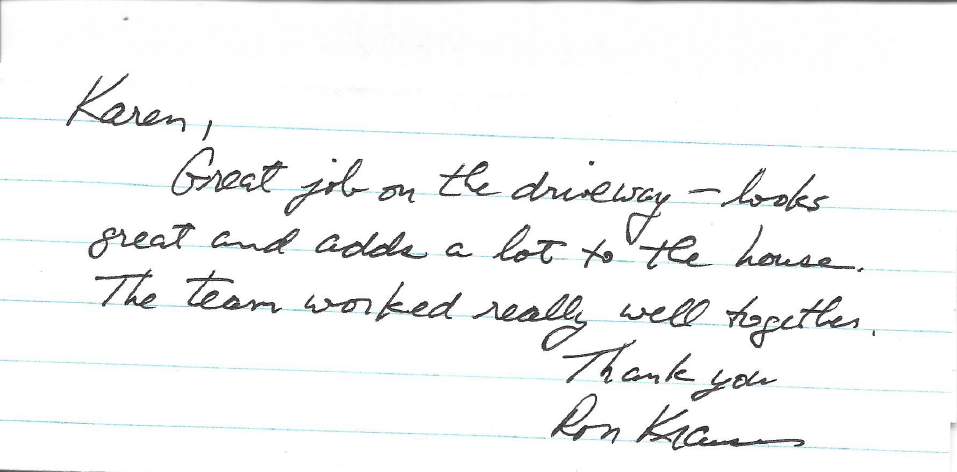 Karen,
Great job on the driveway – looks
great and adds a lot to the house.
The team worked really well together.
Thank you
Ron